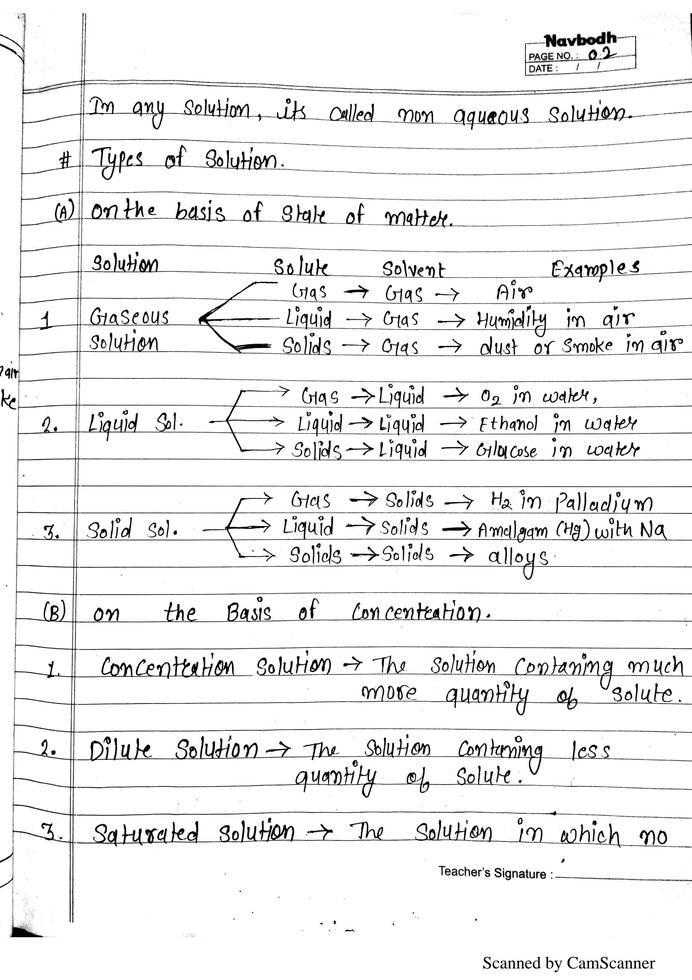 Navbodh
PAGE NO.: 02
DATE : / /
In any solution, its called non aqueous solution.
# Types of Solution.
(A) on the basis of state of matter.
Solution Solute Solvent Examples
Gas → Gas → Air
1 Gaseous Liquid → Gas → Humidity in air
Solution Solids → Gas → dust or smoke in air
Gas → Liquid → O2 in water,
2. Liquid Sol. → Liquid → Liquid → Ethanol in water
→ Solids → Liquid → Glucose in water
→ Gas → Solids → H2 in Palladium
3. Solid Sol. → Liquid → Solids → Amalgam (Hg) with Na
→ Solids → Solids → alloys.
(B) on the Basis of Concentration.
1. Concentration Solution → The Solution Contaning much
more quantity of Solute.
2. Dilute Solution → The Solution Contening less
quantity of Solute.
3. Saturated Solution → The Solution in which no
Teacher's Signature :
Scanned by CamScanner